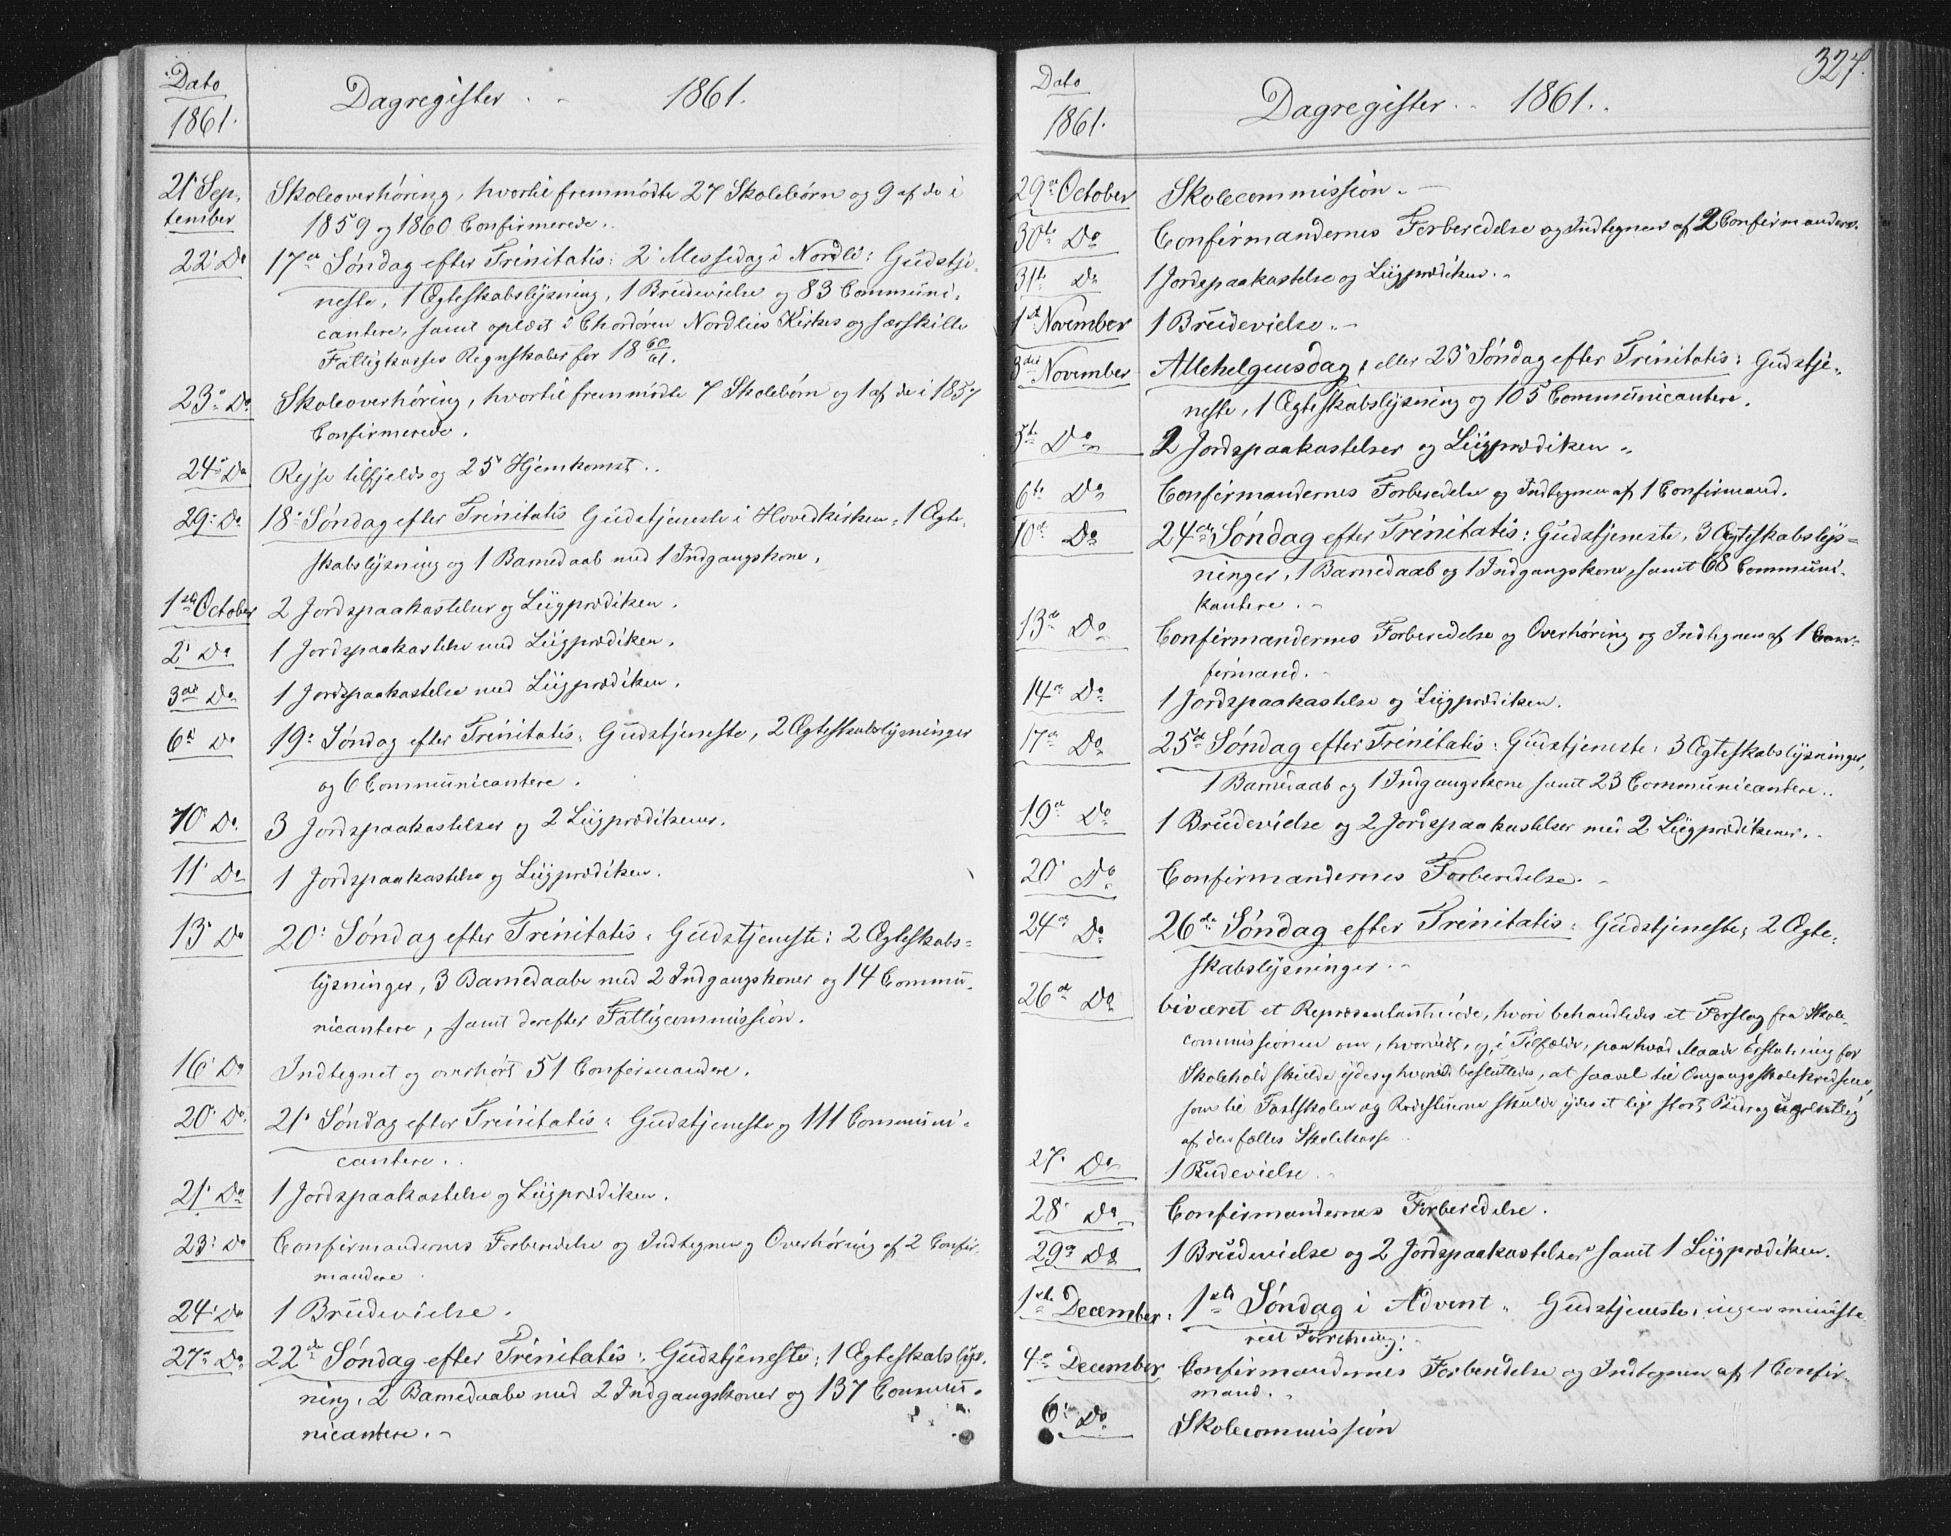 Dato
1861.
Dagregister. - 1861.
21' Sep-
tember
Skoleoverhøring, hvortil fremmødte 27 Skolebørn og 9 af de i
1859 og 1860 Confirmerede.
22' Do
17de Søndag efter Trinitatis: 2' Messedag i Nordli: Gudstje-
neste, 1 Ægteskabslysning, 1 Brudevielse og 83 Communi-
cantere, samt oplæst i Chordøren Nordlies Kirkes og særskilte
Fattigkasses Regnskaber for 18 60/61.
23' Do
Skoleoverhøring, hvortil fremmødte 7 Skolebørn og 1 af de i 1857
Confirmerede.
24' Do
Rejse tilfjelds og 25' Hjemkomst.
29' Do
18' Søndag efter Trinitatis Gudstjeneste i Hovedkirken: 1 Ægte-
skabslysning og 1 Barnedaab med 1 Indgangskone.
1ste October
2 Jordspaakastelser og Liigprædiken.
2' Do
1 Jordspaakastelse med Liigprædiken.
3die Do
1 Jordspaakastelse med Liigprædiken.
6te Do
19' Søndag efter Trinitatis: Gudstjeneste, 2 Ægteskabslysninger
og 6 Communicantere.
10' Do
3 Jordspaakastelser og 2 Liigprædikener.
11' Do
1 Jordspaakastelse og Liigprædiken.
13' Do
20' Søndag efter Trinitatis: Gudstjeneste: 2 Ægteskabs-
lysninger, 3 Barnedaabe med 2 Indgangskoner og 14 Commu-
nicantere, samt derefter Fattigcommission.
16' Do
Indtegnet og overhørt 51 Confirmandere.
20' Do
21' Søndag efter Trinitatis: Gudstjeneste og 111 Communi-
cantere.
21' Do
1 Jordspaakastelse og Liigprædiken.
23' Do
Confirmandernes Forberedelse og Indtegnen og Overhøring af 2 Confir-
mandere
24' Do
1 Brudevielse.
27' Do
22de Søndag efter Trinitatis: Gudstjeneste: 1 Ægteskabslys-
ning, 2 Barnedaabe med 2 Indgangskoner og 137 Commu-
nicantere.
324.
Dato
1861.
Dagregister. - 1861.
29de October
Skolecommission.
30te Do
Confirmandernes Forberedelse og Indtegnen af 2 Confirmandere.
31te Do
1 Jordspaakastelse og Liigprædiken.
1ste November
1 Brudevielse.
3die November
Allehelgensdag, eller 23' Søndag efter Trinitatis: Gudstje-
neste, 1 Ægteskabslysning og 105 Communicantere.
5te Do
2 Jordspaakastelser og Liigprædiken.
6te Do
Confirmandernes Forberedelse og Indtegnen af 1 Confirmand.
10de Do
24de Søndag efter Trinitatis: Gudstjeneste, 3 Ægteskabslys-
ninger, 1 Barnedaab og 1 Indgangskone, samt 68 Communi-
kantere.
13de Do
Confirmandernes Forberedelse og Overhøring og Indtegnen af 1 Con-
firmand.
14de Do
1 Jordspaakastelse og Liigprædiken.
17de Do
25de Søndag efter Trinitatis: Gudstjeneste: 3 Ægteskabslysninger,
1 Barnedaab og 1 Indgangskone samt 23 Communicantere.
19de Do
1 Brudevielse og 2 Jordspaakastelser med 2 Liigprædikener.
20' Do
Confirmandernes Forberedelse.
24de Do
26de Søndag efter Trinitatis: Gudstjeneste; 2 Ægte-
skabslysninger.
26de Do
biværet et Repræsentantmøde, hvori behandledes et Forslag fra Skole-
commissionen om, hvorvidt, og, i Tilfælde, paa hvad Maade Erstatning for
Skolehold skulde ydes, og hvorved besluttedes, at saavel til Omgangsskolekredsene,
som til Fastskolen og Rodestuerne skulde ydes et lige stort Bidrag
af den fælles Skolekasse.
27' Do
1 Brudevielse.
28' Do
Confirmandernes Forberedelse.
29de Do
1 Brudevielse og 2 Jordspaakastelser samt 1 Liigprædiken.
1ste December.
1ste Søndag i Advent. Gudstjeneste, ingen ministe-
riel Forretning.
4de December
Confirmandernes Forberedelse og Indtegnen af 1 Confir-
mand.
6' Do
Skolecommission